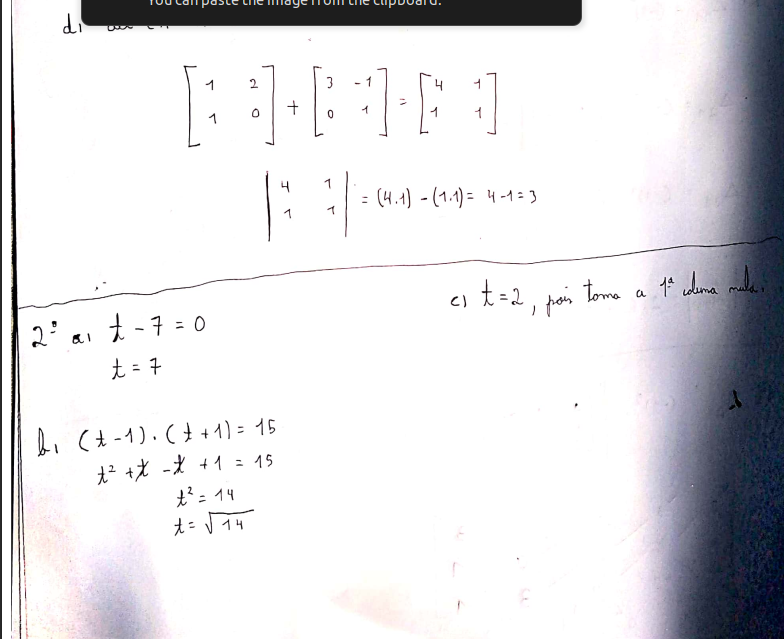 You can paste the image from the clipboard.
d)
[1 2; 1 0] + [3 -1; 0 1] = [4 1; 1 1]
|4 1; 1 1| = (4.1) - (1.1) = 4-1=3
c) t=2, pois torna a 1ª coluna nula.
2º a) t - 7 = 0
t = 7
b) (t-1).(t+1) = 15
t² + t - t + 1 = 15
t² = 14
t = √14